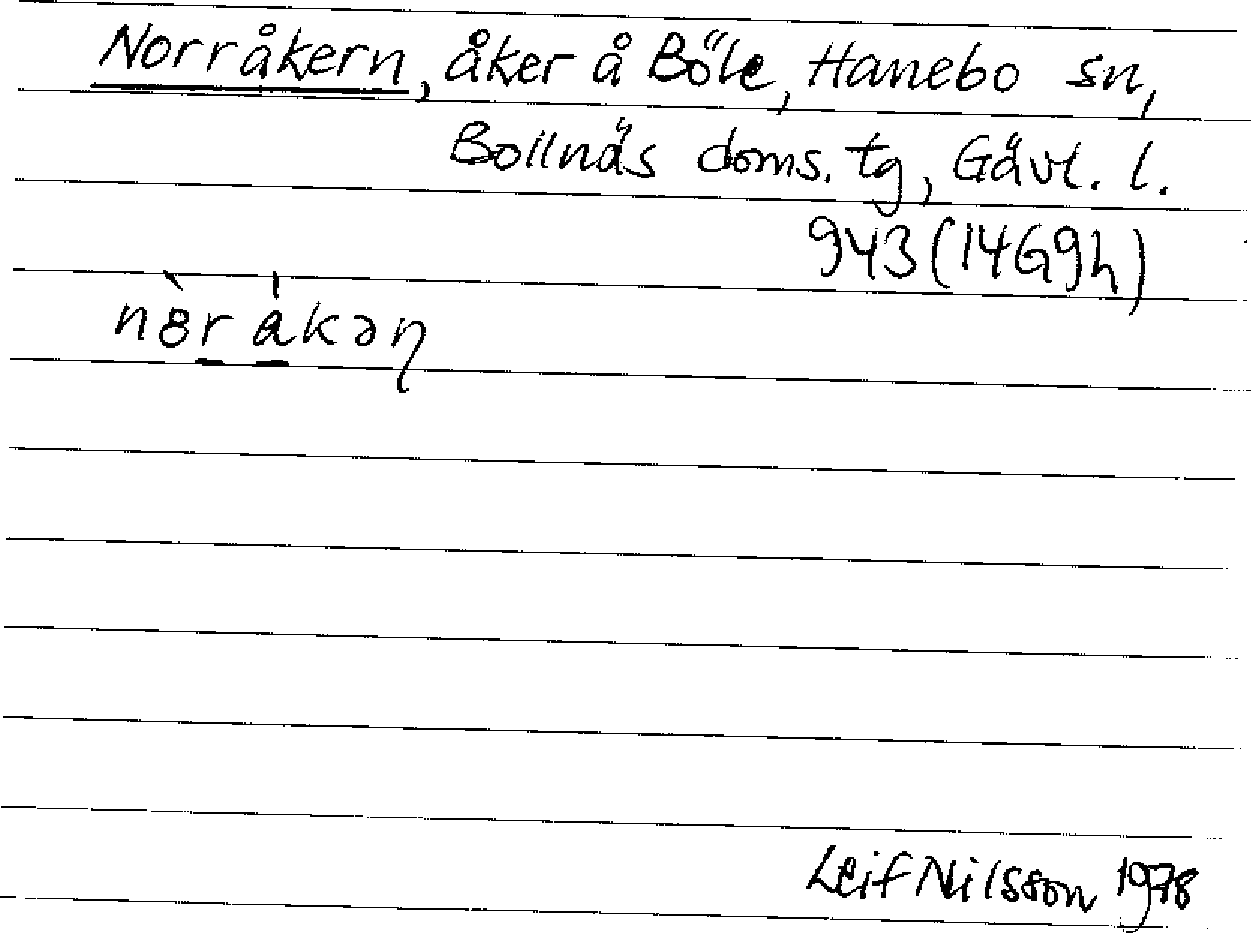 Norråkern, åker å Böle, Hanebo sn,
Bollnäs doms. tg, Gävl. l.
943 (14G9h)
nòr åkəɳ
Leif Nilsson 1978